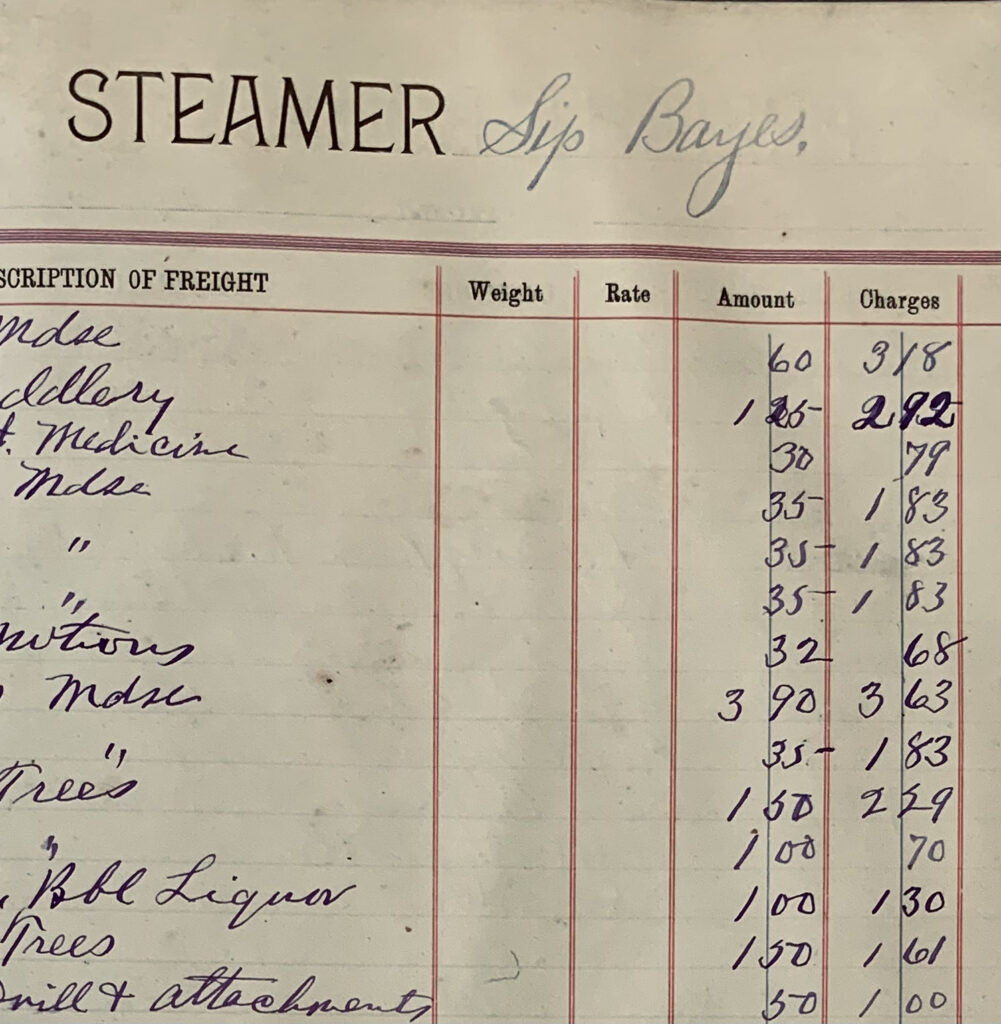 STEAMER Sip Bayes.
SCRIPTION OF FREIGHT Weight Rate Amount Charges
Mdse 60 3 18
ddlery 1 25 2 92
t. Medicine 30 79
Mdse 35 1 83
" 35 1 83
" 35 1 83
Notions 32 68
Mdse 3 90 3 63
" 35 1 83
Trees 1 50 2 29
" 1 00 70
Bbl Liquor 1 00 1 30
Trees 1 50 1 61
& attachments 50 1 00